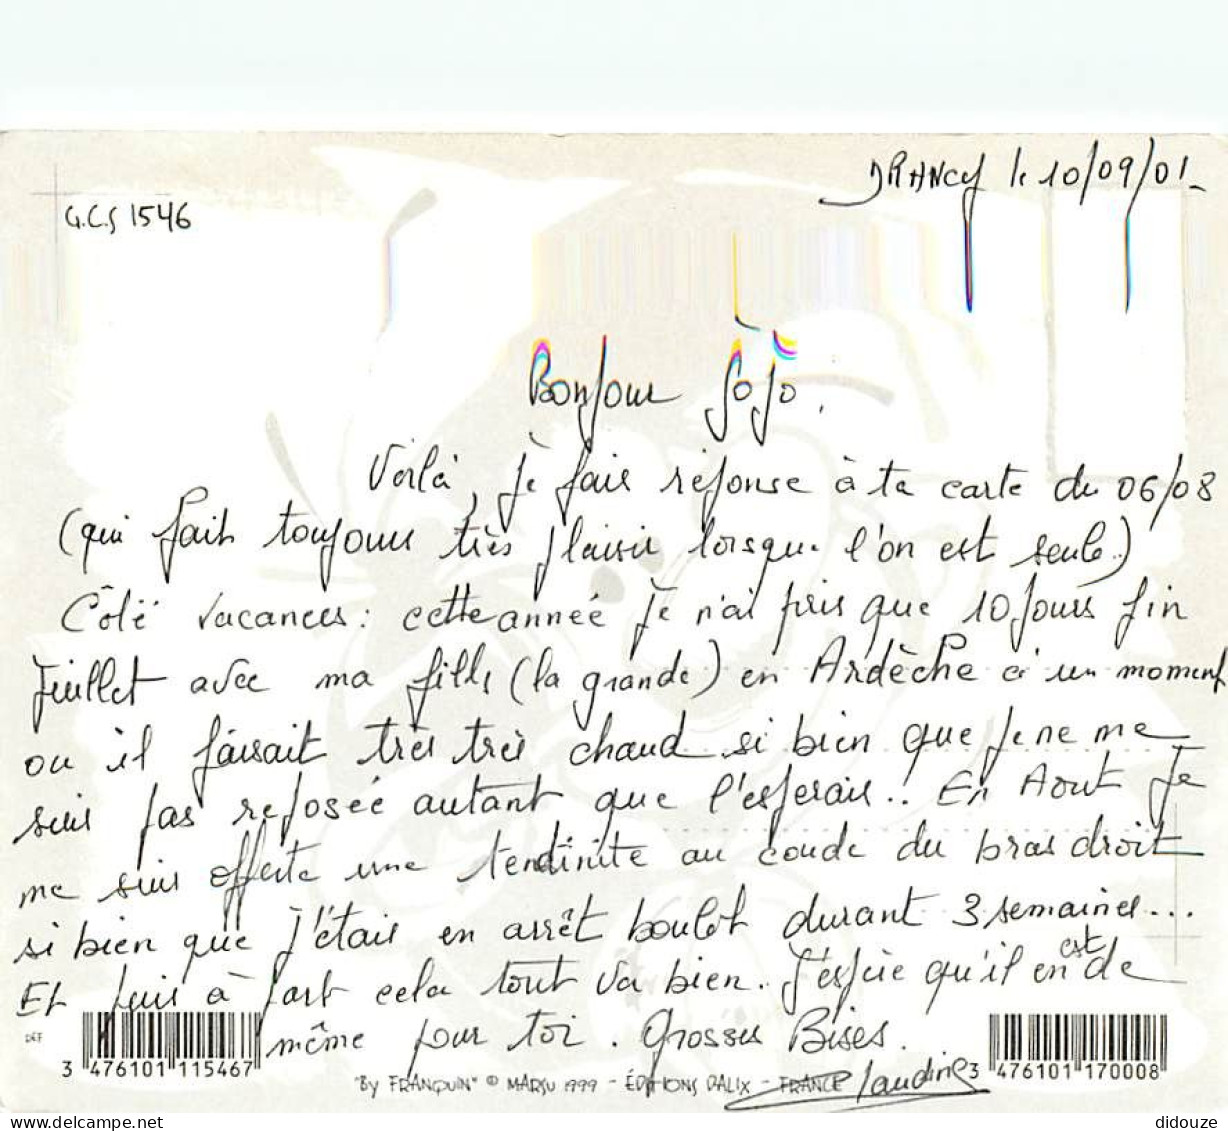 DRANCY le 10/09/01-
G.C.S 1546
Bonjour Jojo,
Voilà, je fais réponse à ta carte du 06/08
(qui fait toujours très plaisir lorsque l'on est seule.)
Côté vacances : cette année je n'ai pris que 10 jours fin
Juillet avec ma fille (la grande) en Ardèche à un moment
ou il faisait très très chaud si bien que je ne me
suis pas reposée autant que l'espérais.. En Aout je
me suis offerte une tendinite au coude du bras droit
si bien que j'étais en arrêt boulot durant 3 semaines...
Et puis à part cela tout va bien. J'espère qu'il en est de
même pour toi. Grosses Bises.
DEF
3 476101 115467
"By FRANQUIN" © MARSU 1999 - ÉDITIONS DALIX - FRANCE
3 476101 170008
didouze